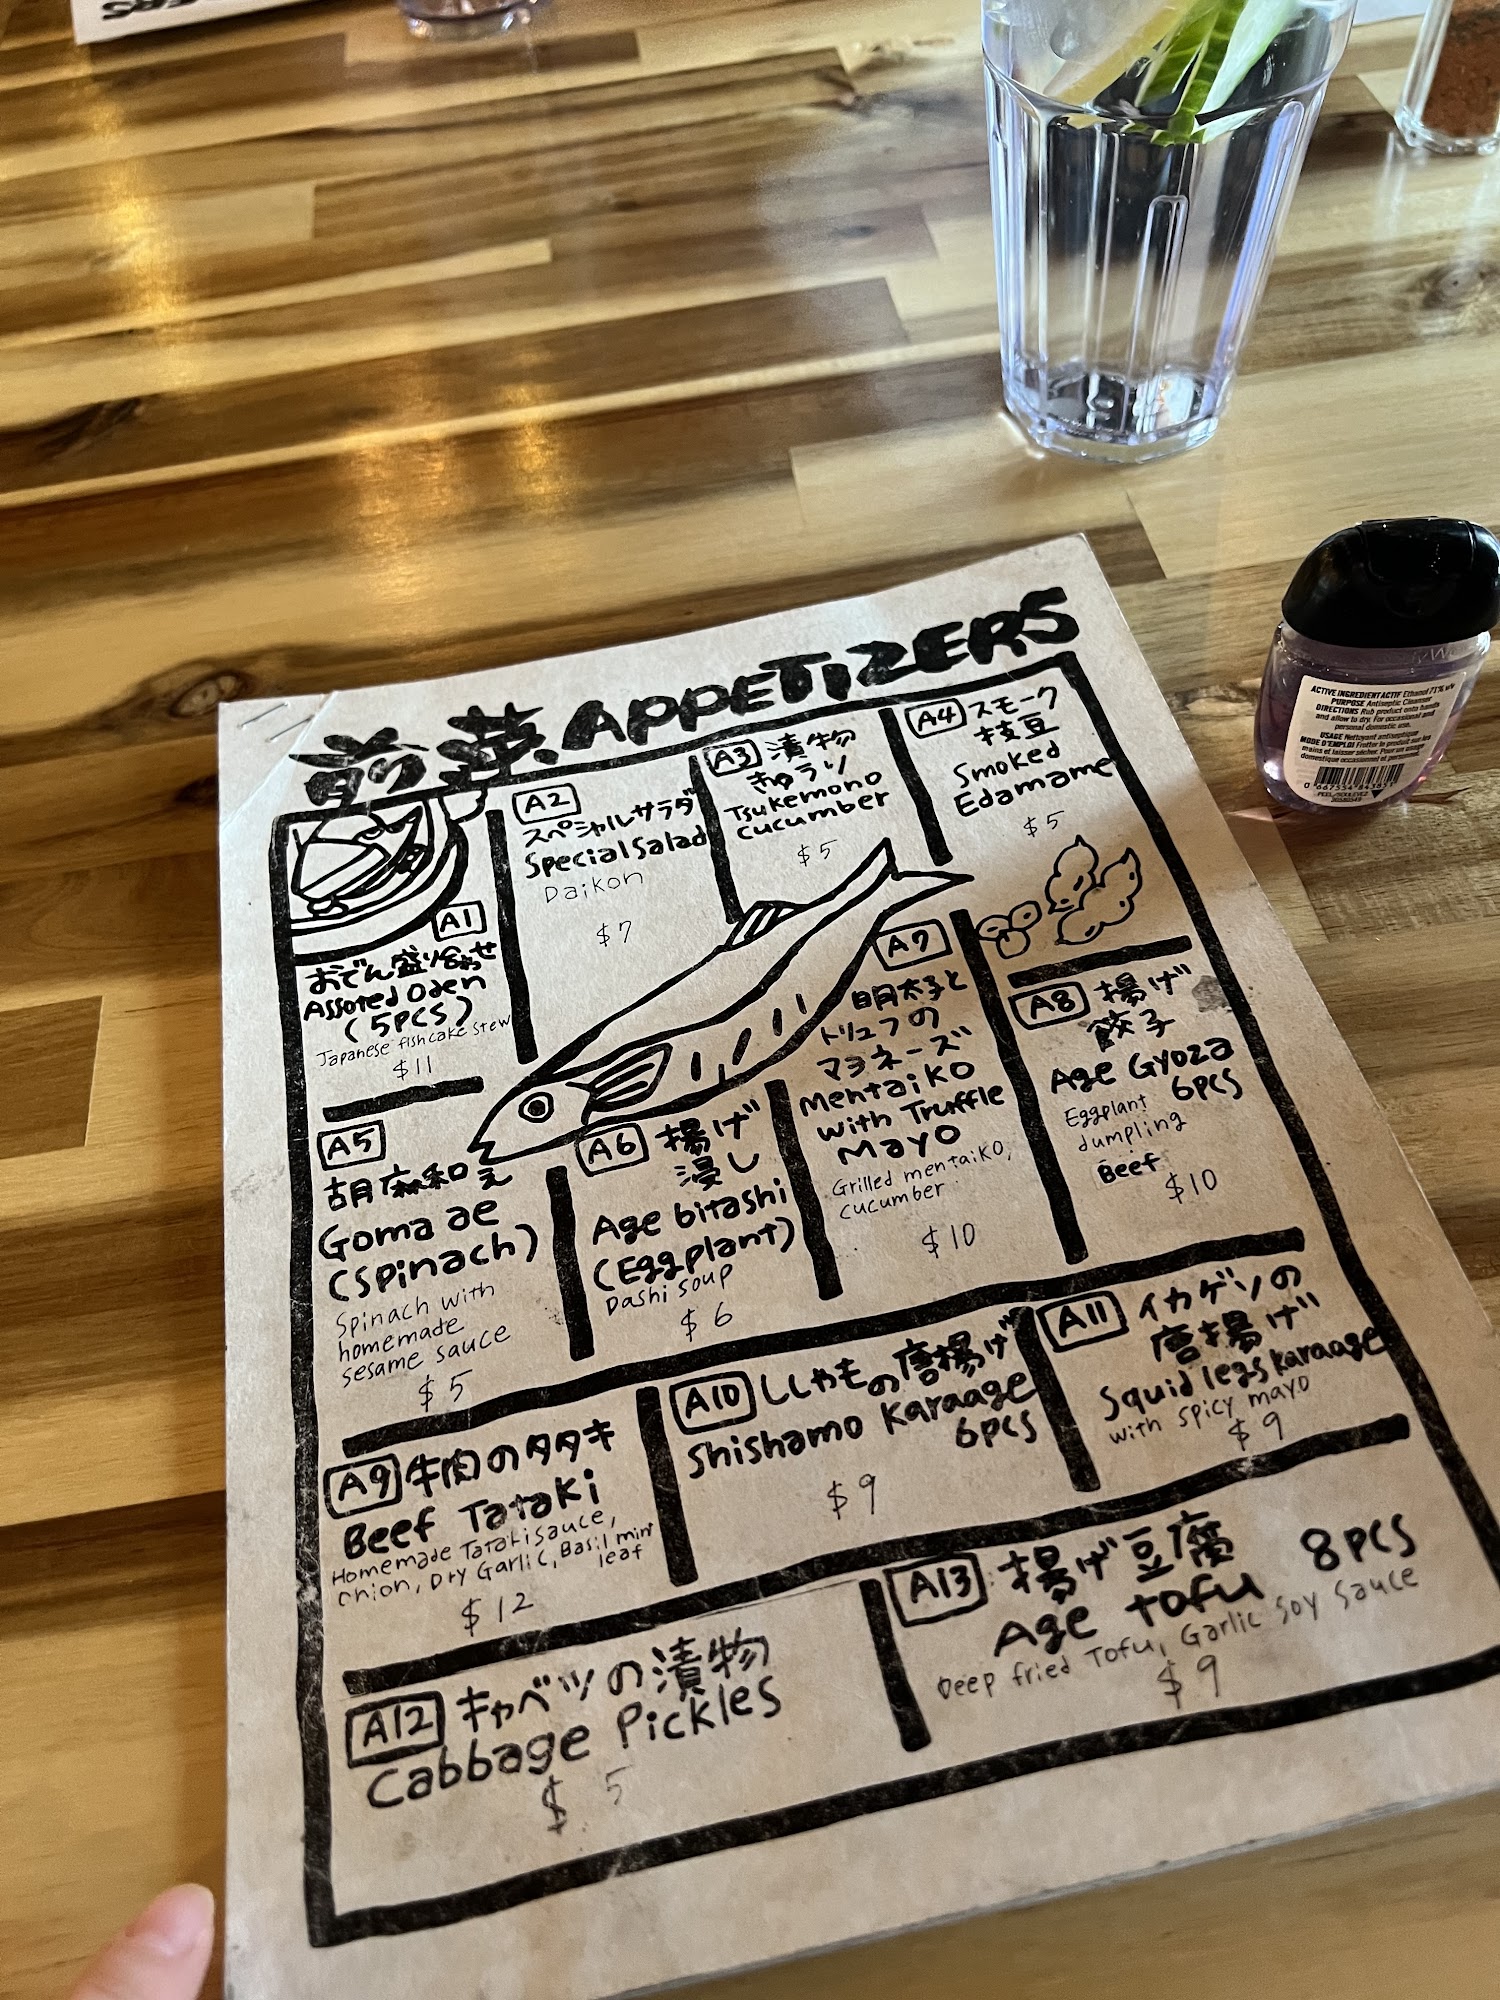 前菜 APPETIZERS
A1
おでん盛り合わせ
Assorted Oden
(5PCS)
Japanese fishcake stew
$11
A2
スペシャルサラダ
Special Salad
Daikon
$7
A3 漬物
きゅうり
Tsukemono
cucumber
$5
A4 スモーク
枝豆
Smoked
Edamame
$5
A5
胡麻和え
Goma ae
(Spinach)
Spinach with
homemade
sesame sauce
$5
A6 揚げ
浸し
Age bitashi
(Eggplant)
Dashi soup
$6
A7
明太子と
トリュフの
マヨネーズ
Mentaiko
with Truffle
Mayo
Grilled mentaiko,
cucumber
$10
A8 揚げ
餃子
Age Gyoza
6PCS
Eggplant
dumpling
Beef
$10
A9 牛肉のタタキ
Beef Tataki
Homemade Tataki sauce,
onion, Dry Garlic, Basil mint
leaf
$12
A10 ししゃもの唐揚げ
Shishamo Karaage
6PCS
$9
A11 イカゲソの
唐揚げ
Squid legs karaage
with spicy mayo
$9
A12 キャベツの漬物
Cabbage Pickles
$5
A13 揚げ豆腐 8PCS
Age tofu
Deep fried Tofu, Garlic Soy Sauce
$9
ACTIVE INGREDIENT/ACTIF Ethanol 71% w/w
PURPOSE Antiseptic Cleanser
DIRECTIONS Rub product onto hands
and allow to dry. For occasional and
personal domestic use.
USAGE Nettoyant antiseptique
MODE D'EMPLOI Frotter le produit sur les
mains et laisser sécher. Pour un usage
domestique occasionnel et personnel.